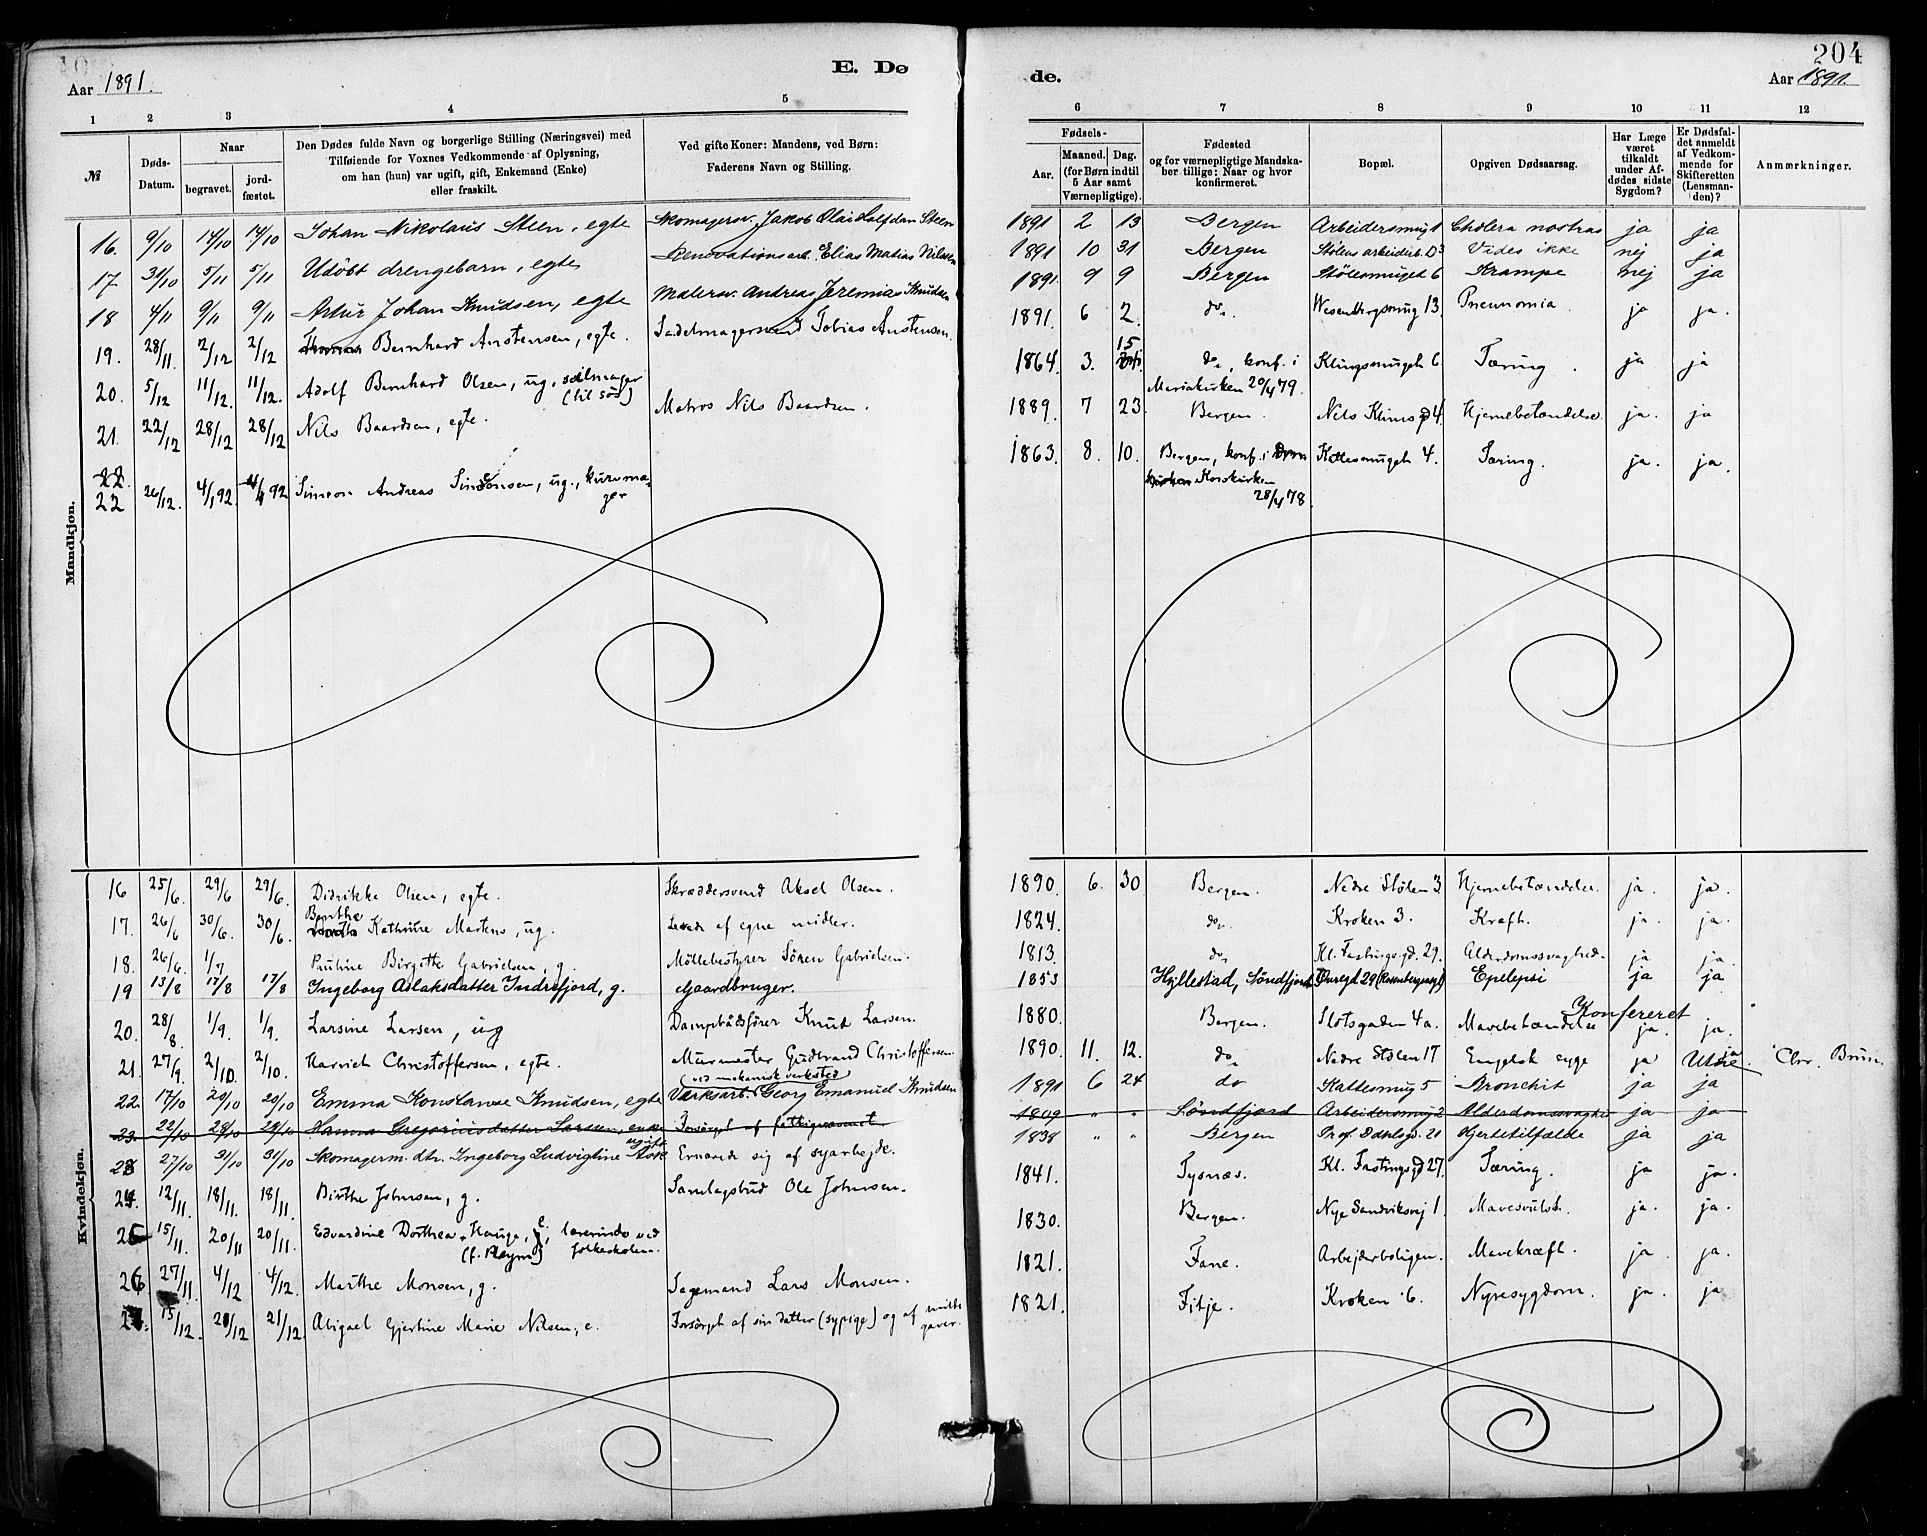 204
Aar 1891.
E. Dø
de.
Aar 1891.
1 2 3 4 5
6 7 8 9 10 11 12
№
Døds-Datum.
Naar
begravet.
jordfæstet.
Den Dødes fulde Navn og borgerlige Stilling (Næringsvei) med
Tilføiende for Voxnes Vedkommende af Oplysning,
om han (hun) var ugift, gift, Enkemand (Enke)
eller fraskilt.
Ved gifte Koner: Mandens, ved Børn:
Faderens Navn og Stilling.
Fødsels-
Aar.
Maaned. Dag.
(for Børn indtil
5 Aar samt
Værnepligtige).
Fødested
og for værnepligtige Mandska-
ber tillige: Naar og hvor
konfirmeret.
Bopæl.
Opgiven Dødsaarsag.
Har Læge
været
tilkaldt
under Af-
dødes sidste
Sygdom?
Er Dødsfal-
det anmeldt
af Vedkom-
mende for
Skifteretten
(Lensman-
den)?
Anmærkninger.
Mandkjøn.
16. 9/10 14/10 14/10 Johan Nikolaus Steen, egte Skomagersv. Jakob Olai Halfdan Steen 1891 2 13 Bergen Arbeidersmug 1 Cholera nostras ja ja
17 31/10 5/11 5/11 Udöbt drengebarn, egte Renovationsarb. Elias Matias Nilssen 1891 10 31 Bergen Stölens arbeiderb. D3 Vides ikke nej ja
18 4/11 9/11 9/11 Artur Johan Knudsen, egte Malersv. Andreas Jeremias Knudsen 1891. 9 9 Bergen Stölesmuget 6 Krampe nej ja
19. 28/11. 2/12 2/12 Bernhard Anstensen, egte. Sadelmagersvend Tobias Anstensen. 1891. 6 2. do. 13. Pneumonia ja ja.
20. 5/12 11/12. 11/12. Adolf Bernhard Olsen, ug, seilmager 1864. 3. 15 do, konf. i Klingesmuget 6 Tæring. ja ja
(til søs)
Mariakirken 20/4 79.
21. 22/12 28/12 28/12 Nils Baardsen, egte. Matros Nils Baardsen. 1889. 7 23. Bergen. Nels Klims g 4. Hjernebetændelse. ja. ja
22.
22 26/12. 4/1 92. 4/1 92 Simeon Andreas Simonsen, ug., kurvma- 1863. 8. 10. Bergen, konf. i Dom Kattesmuget 4. Tæring. ja. ja.
ger
kirken Korskirken
28/4 78.
Kvindekjøn.
16 25/6. 29/6 29/6. Didrikke Olsen, egte. Skræddersvend Aksel Olsen. 1890. 6. 30 Bergen. Nedre Stölen 3. Hjernebetændelse. ja. ja.
Benthe
17. 26/6 30/6. 30/6. Kathrine Martens, ug. Levede af egne midler. 1824. do. Kroken 3. Kræft. ja. ja.
18. 26/6. 1/7 Pauline Birgitte Gabrielsen, g. Möllebestyrer Sören Gabrielsen. 1813. do, Kl. Fastingsgd. 29. Alderdomssvaghed. ja ja.
19 13/8 17/8 17/8 Ingeborg Aslaksdatter Indrefjord, g. Gaardbruger. 1853 Hyllestad, Söndfjord Epilepsi ja ja
20. 28/8. 1/9. 1/9. Larsine Larsen, ug Dampbådsfører Knut Larsen. 1880. Bergen. Slotsgaden 4a. Mavebetændelse Konfereret ja. ja.
21. 27/9. 2/10. 2/10. Harriet Christoffersen, egte. Murmester Gudbrand Christoffersen. 1890. 11. 12. do. Nedre Stölen 17 Engelsk syge ja ja Chr. Brun.
(ved mekanisk verksted)
22. 17/10 20/10 20/10 Emma Konstanse Knudsen, egte Værksarb. Georg Emanuel Knudsen 1891 6 24 do Kattesmug 5 Bronchit ja ja
23. 22/10 28/10 28/10 Hanna Gregoriusdatter Larsen, enke Forsörget af fattigvæsenet 1809 " " Söndfjord Arbeidersmug 2 Alderdomssvaghed ja ja
ugift
23 27/10 31/10 31/10 Skomagerm. dtr. Ingeborg Ludvigtine Ernærede sig af syarbejde. 1838 " " Bergen Prof. 21 Hjertetilfælde ja ja
24. 12/11. 18/11. 18/11. Birthe Johnsen, g. Samlagsbud Ole Johnsen. 1841. Tysnæs. Kl. Fastingsgd 27. Tæring. ja ja.
25 15/11. 20/11 20/11. Edvardine Dorthea Hauge, e., lærerinde ved 1830. Bergen. Nye Sandviksvej 1. Mavesvulst. ja. ja.
folkeskolen.
26 27/11. 4/12 4/12. Marthe Monsen, g. Sagmand Lars Monsen. 1821. Fane. Arbejderboligen. Mavekræft. ja. ja.
27. 15/12. 21/12 21/12. Abigael Gjertine Marie Nilsen, e. Forsörget af sin datter (sypige) og af milde 1821. Fitje. Kroken 6. Nyresygdom. ja. ja
gaver.